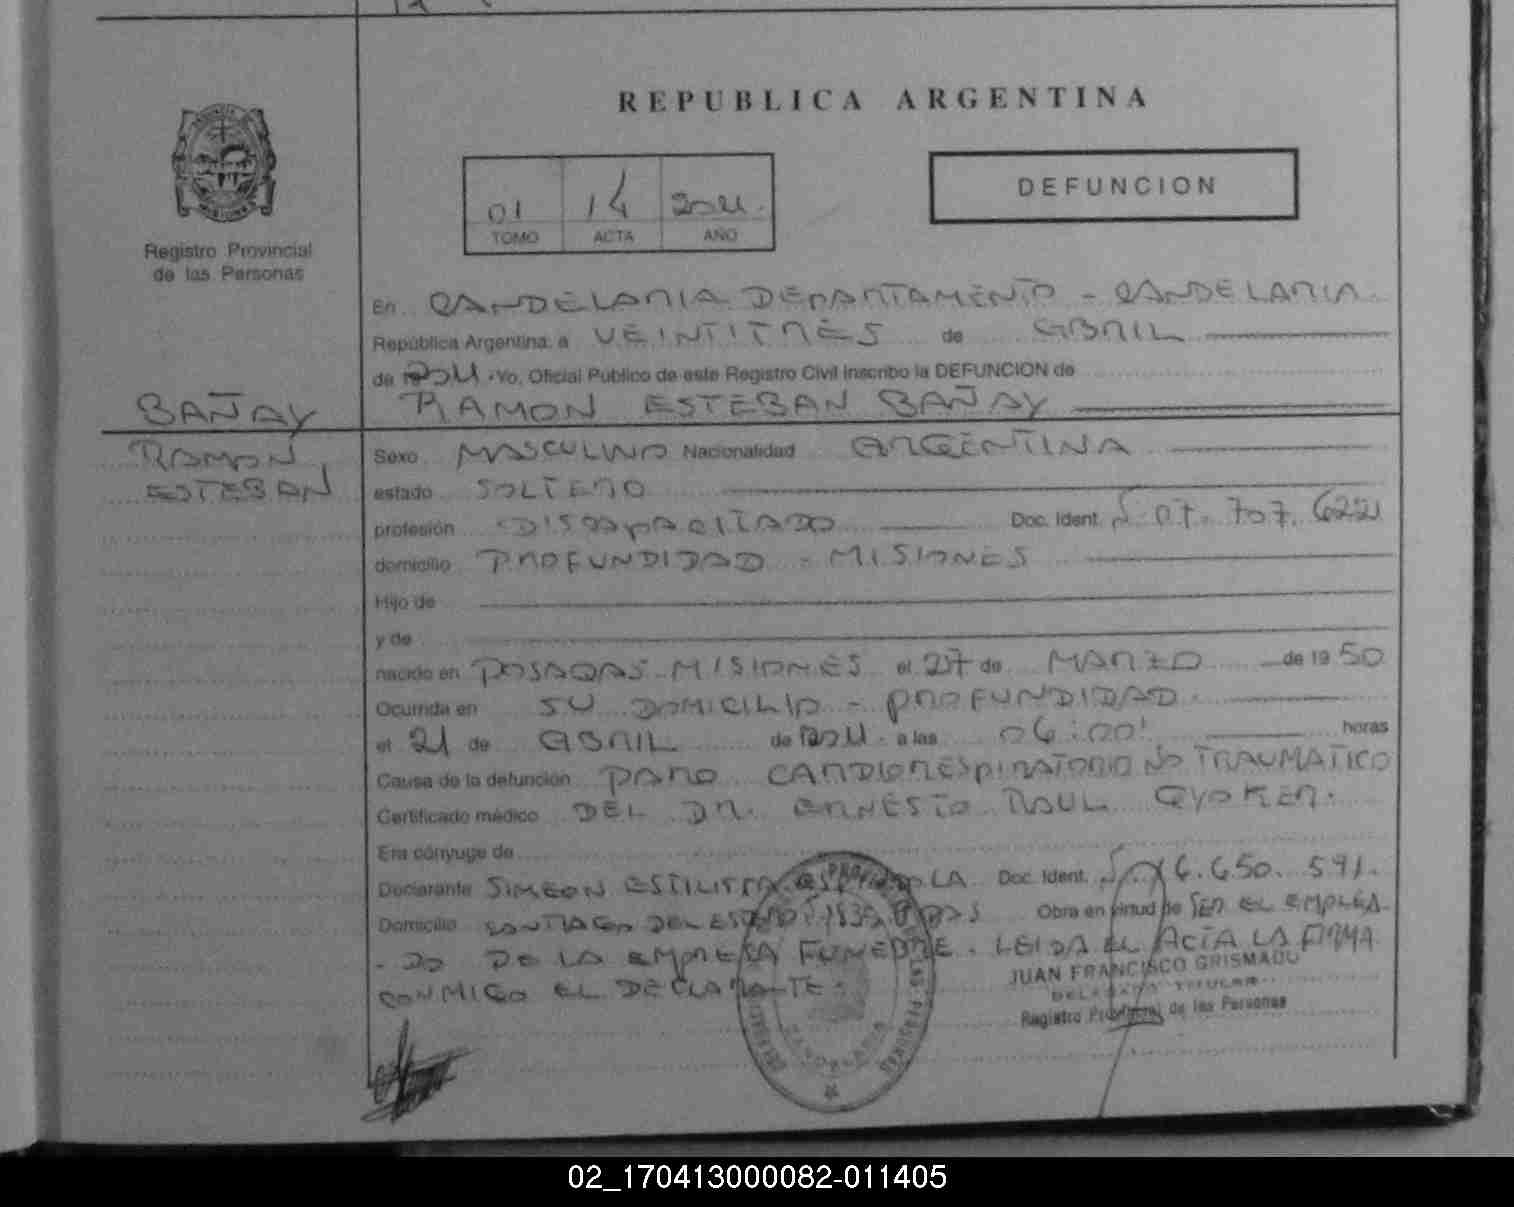 REPUBLICA ARGENTINA
01 14 2011.
TOMO ACTA AÑO
DEFUNCION
Registro Provincial
de las Personas
En CANDELARIA DEPARTAMENTO - CANDELARIA
República Argentina a VEINTITRÉS de ABRIL
de 2011. Yo, Oficial Público de este Registro Civil inscribo la DEFUNCION de
RAMON ESTEBAN BAÑAY
BAÑAY
RAMON
ESTEBAN
Sexo MASCULINO Nacionalidad ARGENTINA
estado SOLTERO
profesión DISCAPACITADO Doc. Ident. 07.707.622
domicilio PROFUNDIDAD - MISIONES
Hijo de
y de
nacido en POSADAS MISIONES el 27 de MARZO de 1950
Ocurrida en SU DOMICILIO - PROFUNDIDAD
el 21 de ABRIL de 2011. a las 06:00' horas
Causa de la defunción PARO CARDIORESPIRATORIO NO TRAUMATICO
Certificado médico DEL DR. ERNESTO RAUL
Era cónyuge de
Declarante SIMEON LA Doc. Ident. 6.650.591.
Domicilio SANTIAGO DEL ESTERO Obra en virtud de SER EL EMPLEA-
- DO DE LA EMPRESA FUNEBRE. LEIDA EL ACTA LA FIRMA
CONMIGO EL DECLARANTE.
JUAN FRANCISCO GRISMADO
DELEGADO TITULAR
Registro Provincial de las Personas
02_170413000082-011405